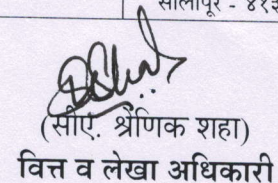 सोलापूर - ४१३
(सीए. श्रेणिक शहा)
वित्त व लेखा अधिकारी